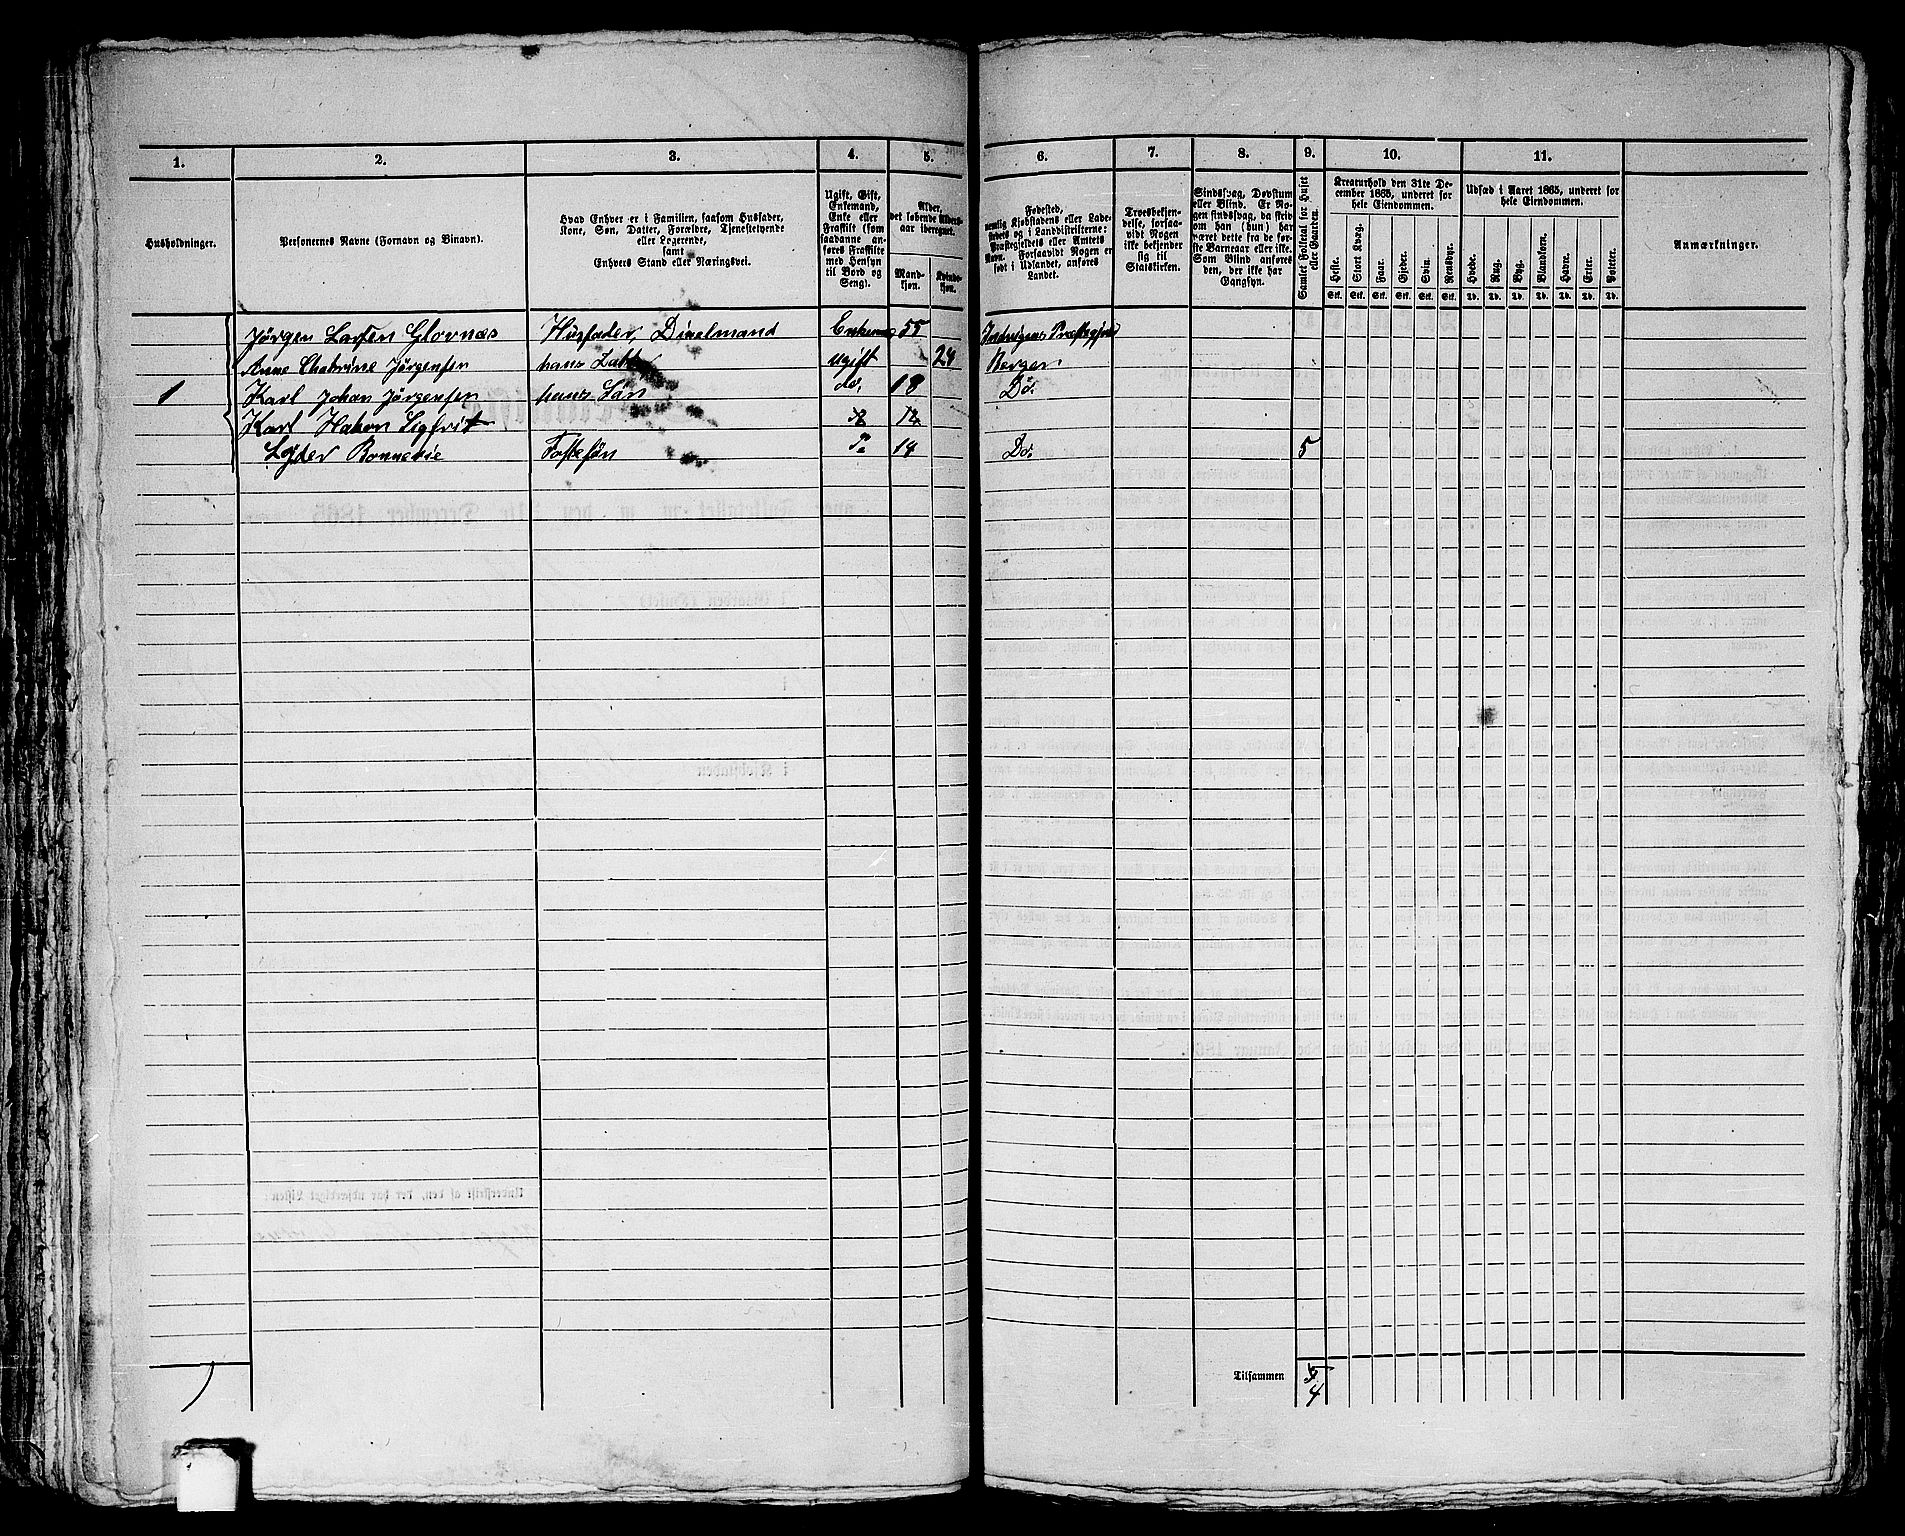 1. 2. 3. 4. 5. 6. 7. 8. 9. 10. 11.
Husholdninger.
Personernes Navne (Fornavn og Binavn).
Hvad Enhver er i Familien, saasom Husfader,
Kone, Søn, Datter, Forældre, Tjenestetyende
eller Logerende,
samt
Enhvers Stand eller Næringsvei.
Ugift, Gift,
Enkemand,
Enke eller
Fraskilt (som
saadanne an-
føres Fraskilte
med Hensyn
til Bord og
Seng).
Alder,
det løbende Alders-
aar iberegnet.
Mand-
kjøn.
Kvinde-
kjøn.
Fødested,
nemlig Kjøbstadens eller Lade-
stedets og i Landdistrikterne:
Præstegjeldets eller Amtets
Navn. Forsaavidt Nogen er
født i Udlandet, anføres
Landet.
Troesbekjen-
delse, forsaa-
vidt Nogen
ikke bekjender
sig til
Statskirken.
Sindssvag, Døvstum
eller Blind. Er No-
gen sindssvag, da skriv
om han (hun) har
været dette fra de før-
ste Barneaar eller ikke.
Som Blind anføres
den, der ikke har
Gangsyn.
Samlet Folketal for Huset
eller Gaarden.
Kreaturhold den 31te De-
cember 1865, underet for
hele Eiendommen.
Heste. Stort Kvæg. Faar. Gjeder. Svin. Rensdyr.
Stk. Stk. Stk. Stk. Stk. Stk.
Udsæd i Aaret 1865, underet for
hele Eiendommen.
Hvede. Rug. Byg. Blandkorn. Havre. Erter. Poteter.
Td. Td. Td. Td. Td. Td. Td.
Anmærkninger.
Jørgen Larsen Husfader, 55
Anne Jørgensen hans ugift 24 Bergen
1 Karl Johan Jørgensen hans Søn do. 18 Do.
Karl Hakon Sigfrit 12
Lyder Bonnevie Fostersøn 14 Do. 5
Tilsammen 5
4